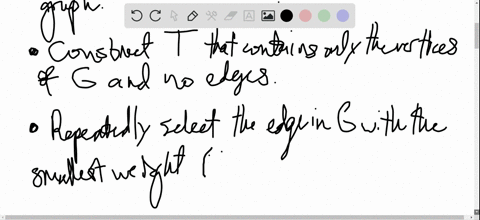 graph.
• Construct T that contains only the vertices
of G and no edges.
• Repeatedly select the edge in G with the
smallest weight (